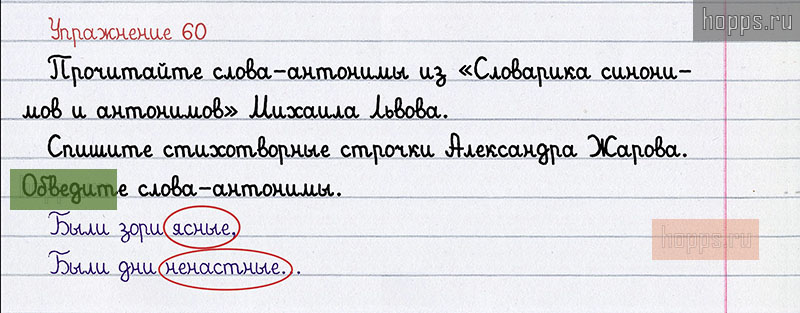 hopps.ru
Упражнение 60
Прочитайте слова-антонимы из «Словарика синони-
мов и антонимов» Михаила Львова.
Спишите стихотворные строчки Александра Жарова.
Обведите слова-антонимы.
Были зори ясные,
Были дни ненастные...
hopps.ru